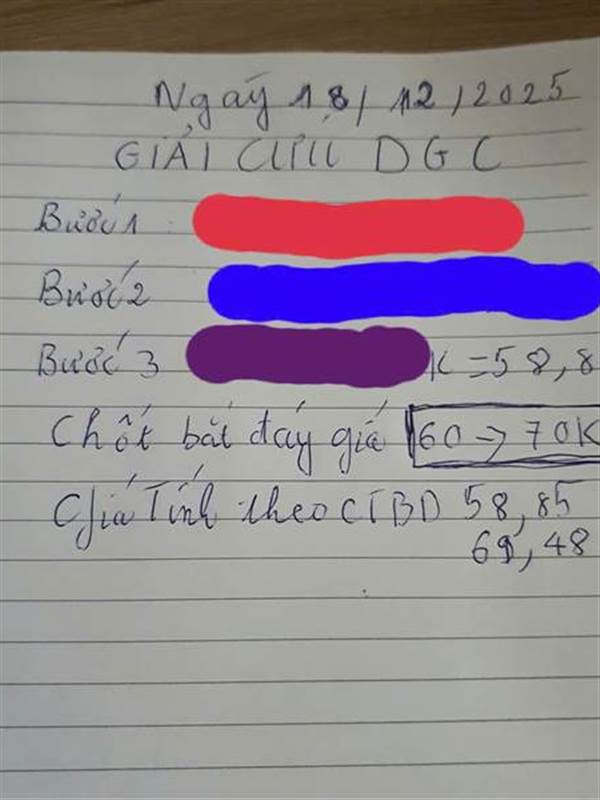 Ngày 18/12/2025
GIẢI CỨU DGC
Bước 1
Bước 2
Bước 3 K = 58,8
Chốt bắt đáy giá 60 → 70K
Giá Tính theo CTBD 58,85
61,48